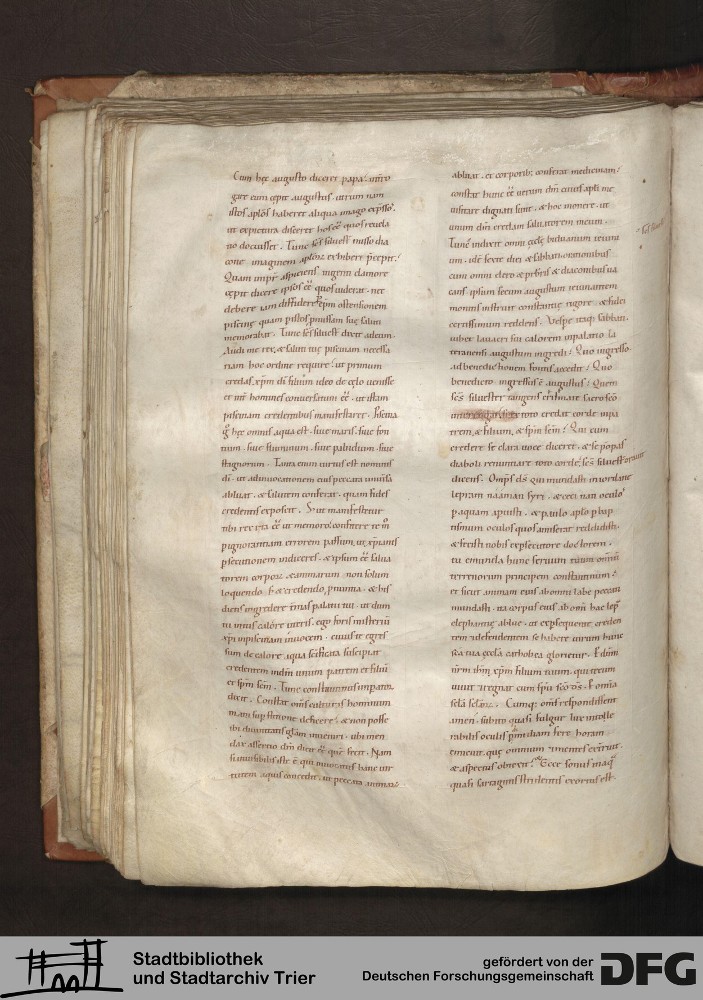 Cum hęc augusto diceret papa. interro
gare eum cepit augustus. utrum nam
istos aplos haberet aliqua imago expressos.
ut ex pictura disceret hos eē quos revela
tio docuisset. Tunc scs silvestr misso dia
cone imaginem aploꝝ exhibere pcepit.
Quam impr aspiciens ingenti clamore
cępit dicere ipsos eē quos viderat. nec
debere iam diffidere spm ostensionem
piscinę quam pistos pmissam suę saluti
memorabat. Tunc scs silvestr dixit ad eum.
Audi me rex. & saluti tuę piscinam necessa
riam hoc ordine require. ut primum
credas xpm di filium ideo de cęlo venisse
et int homines conversatum eē. ut istam
piscinam credentibus manifestaret. Piscina
hęc omnis aqua est. sive maris. sive fon
tium. sive fluminum. sive paludium. sive
stagnorum. Tanta enim virtus est nominis
di. ut ad invocationem eius peccata universa
abluat. & salutem conferat. quam fides
credentis exposcit.
tibi rex ita eē ut memoro. confitere te
p ignorantiam errorem passum. ut xpianis
psecutionem indiceres. & ipsum eē salva
torem corporū & animarum non solum
loquendo. & credendo pnuntia. & his
dictis ingredere palatii tui. ut dum
tu intus calore intreris. ego foris misterii
xpi in piscinam invocem. cuius te egres
sum de calore aqua scificata suscipiat
credentem in dm unum patrem et filiū
et spm scm. Tunc constantinus imparator
dicit. Constat oms culturas hominum
iam supstitione deficere. & non posse
ibi divinitatis gtam inveniri. ubi men
dax assertio dm dicit eē que fecit. Nam
si invisibilis iste ē qui invocatus hanc vir
tutem aquis concedit. ut peccata animarū
abluat. et corporib; conferat medicinam.
constat hunc eē verum dm cuius apli me
visitare dignati sunt. & hoc monere. ut
unum dm credam salvatorem meum.
Tunc indixit omni ęcclę biduanum ieiuni
um. id ē sexte diei & sabbati. orationibus
cum omni clero & pbris & diaconibus va
cans. ipsum secum augustum ieiunantem
monitis instruit constantię rigore. & fidei
certissimum reddens. Vespe itaq; sabbati.
iubet lavacri sui calorem in palatio la
teranensi augustum ingredi. Quo ingresso
ad benedictionem fontis accedit. Quo
benedicto ingressus ē augustus. Quem
scs silvester tangens crismate sacro scō
interrogat si ex toto credat corde in pa
trem. & filium. & spm scm. Qui cum
credere se clara voce diceret. & se pōpas
diaboli renuntiare toto corde. scs silvestr oravit
dicens. Omps ds qui mundasti in iordane
lepram naaman syri. & ceci nati oculos
p aquam apuisti. & paulo aplo p bap
tismum oculos quos amiserat reddidisti.
& fecisti nobis ex psecutore doctorem.
tu emunda hunc servum tuum omniū
terrenorum principem constantinum.
et sicut animam eius ab omni labe peccati
mundasti. ita corpus eius ab omi hac lepra
elephantię ablue. ut ex psequente creden
tem et defendentem se habere virum hunc
scā tua ęcclā catholica glorietur. P dnm
nrm ihm xpm filium tuum. qui tecum
vivit et regnat cum spu scō ds. P omia
scla scloꝝ. Cumq; oms respondissent
amen. subito quasi fulgur luc intolle
rabilis oculis p mediam fere horam
emicuit. quę omnium mentes exterruit.
& aspectus obtexit. Ecce sonus in aq
quasi sartagnis stridentis exortus est.
scs silvest
Stadtbibliothek
und Stadtarchiv Trier
gefördert von der
Deutschen Forschungsgemeinschaft
DFG